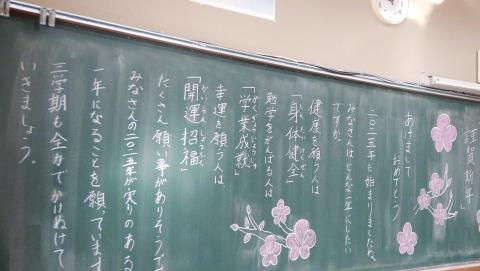 謹賀新年
あけまして
おめでとう
二〇二五年も始まりましたね。
みなさんはどんな一年にしたい
ですか。
健康を願う人は
「身体健全」
勉学をがんばる人は
「学業成就」
がくぎょうじょうじゅ
幸運を願う人は、
「開運招福」
かいうんしょうふく
たくさん願い事がありそうで
みなさんの二〇二五年が実りのある
一年になることを願っています
三学期も全力でかけぬけて
いきましょう。